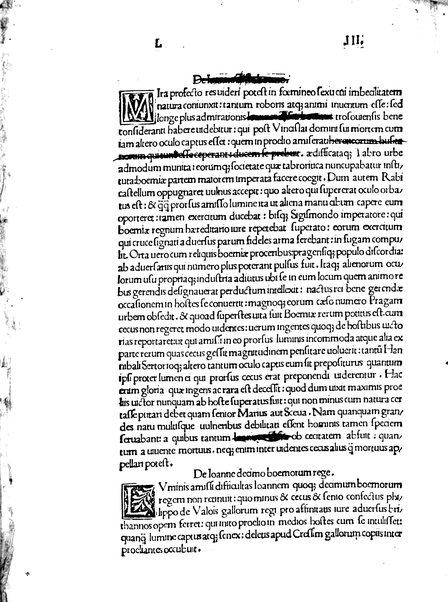 L III.
De
MIra profecto res uideri potest in fœmineo sexu cui imbecilitatem
natura coniunxit: tantum roboris atq; animi inuentum esse: sed
longe plus admirationis trosouiensis bene
consideranti habere uidebitur: qui post Vincislai domini sui mortem cum
iam altero oculo captus esset: quem in prodio amiserat
ædificataq; Tabro urbe
admodum munita: eorumq; societate quæ taboritica nuncupabatur insti
tuta: boemiæ partem maiorem imperata facere coegit. Dum autem Rabi
castellum oppugnaret uulnus accepit: quo altero qui supererat oculo orba/
tus est: & q̃q̃ prorsus amisso lumine ita ut aliena manu cibum capere eum
oporteret: tamen exercitum ducebat: bisq; Sigismondo imperatore: qui
boemiæ regnum hæreditario iure repetebat superato: eorum exercitum
qui cruce signati aduersus parum fideles arma ferebant: in fugam compu/
lit. Orta uero cum reliquis boemiæ proceribus: pragensiq; populo discordia:
ab aduersariis qui numero plus poterant pulsus fuit. Itaq; alienorum ocu/
lorum usu propriaq; industria adiutus ubi se in eum locum quem animo re
bus gerendis designauerat perductum intellexit: nactus rei bene gerendæ
occasionem in hostes se conuertit: magnoq; eorum cæso numero Pragam
urbem obsedit. & quoad superstes uita fuit Boemiæ rerum potitus est: cum
cecus non regeret modo uidentes: uerum ingentes quoq; de hostibus uicto
rias reportaret: at qui amissi in eo prorsus luminis incommoda atque alia ex
parte rerum quas cecus gessit magnitudinem pensitare uoluerit: tantũ Han
nibali Sertorioq; altero tantum oculo captus eum sit prepositurus quantum
ipsi propter lumen ei qui prorsus cecus erat preponendi uiderentur. Hæc
enim gloria quæ ingens ac rara est decessit: quod dum uixit maximis proe
liis uictor nunquam ab hoste superatus fuit: qui non minus eum natura cer
tasse putari debet quam senior Marius aut Sceua. Nam quamquam gran/
des natu mulisque uulneribus debilitati essent hominis tamen speciem
seruabant: a quibus tantum ob cecitatem abfuit: quan/
tum a uiuente mortuus. neq; enim inter uidentes cecus alius q̃ mortuus ap/
pellari potest.
De Ioanne decimo boemorum rege.
LVminis amissi difficultas Ioannem quoq; decimum boemorum
regem non retinuit: quo minus & cecus & senio confectus phi/
lippo de Valois gallorum regi pro affinitatis iure aduersus bri/
thannos opem ferret: qui inito proelio in medios hostes cum se intulisset:
quanq̃ lumine captus atq; senex: deletis apud Cressim gallorum copiis inter
proeliantes occubuit.